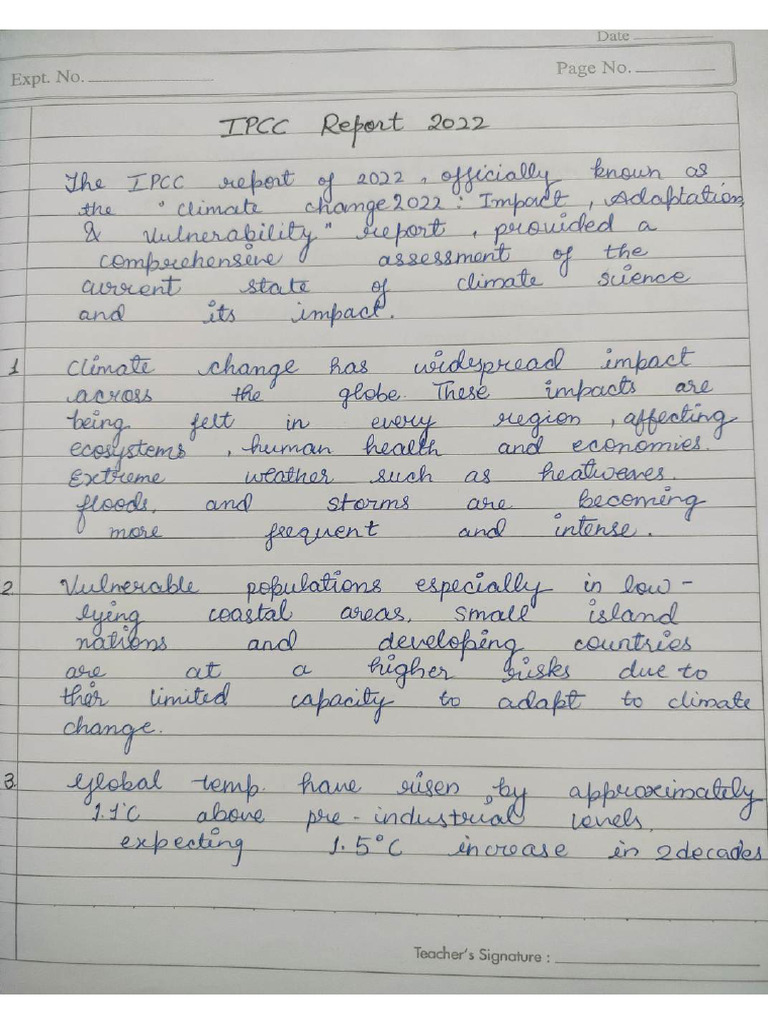 Date
Expt. No.
Page No.
IPCC Report 2022
The IPCC report of 2022, officially known as
the "Climate change 2022: Impact, Adaptation
& Vulnerability" report, provided a
comprehensive assessment of the
current state of climate science
and its impact.
1 Climate change has widespread impact
across the globe. These impacts are
being felt in every region, affecting
ecosystems, human health and economies.
Extreme weather such as heatwaves.
floods, and storms are becoming
more frequent and intense.
2. Vulnerable populations especially in low-
lying coastal areas, small island
nations and developing countries
are at a higher risks due to
thier limited capacity to adapt to climate
change.
3. Global temp. have risen by approximately
1.1°C above pre-industrial levels.
expecting 1.5°C increase in 2 decades
Teacher's Signature :